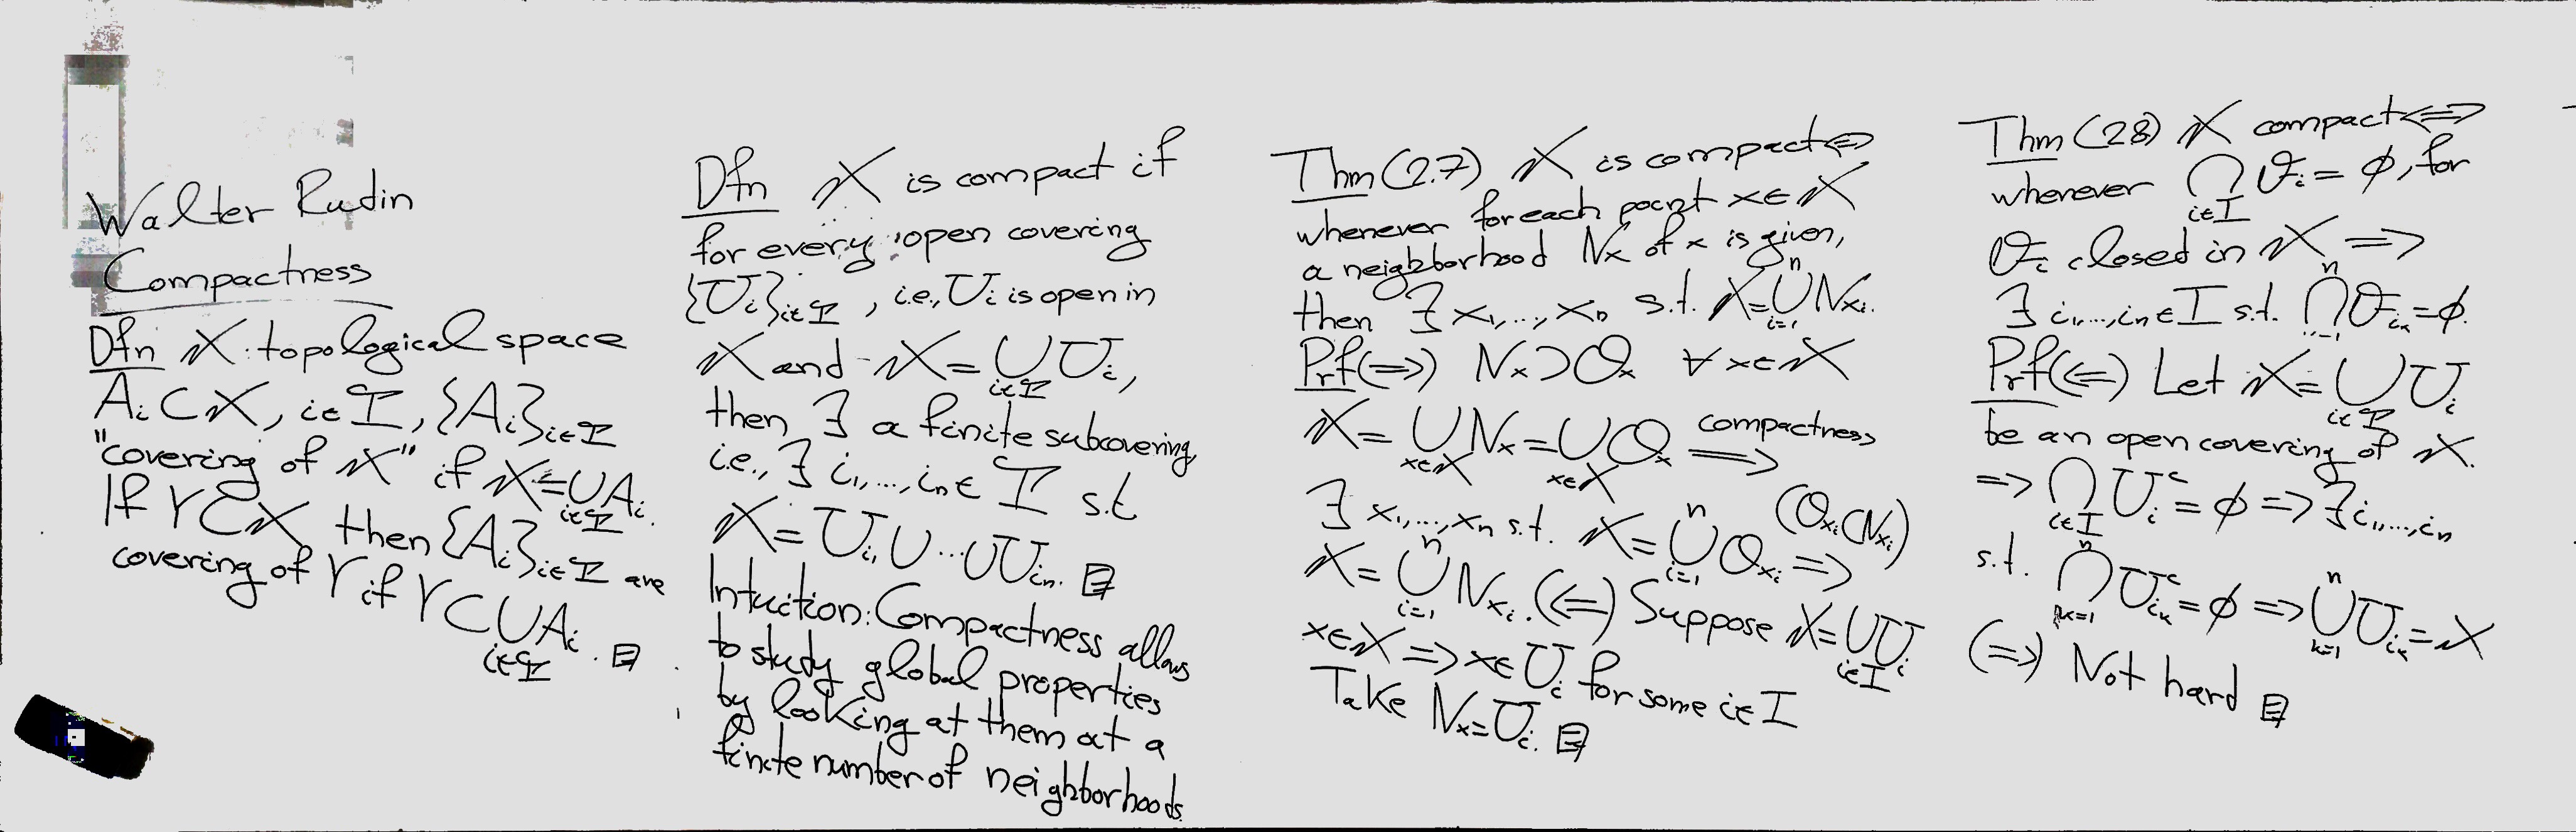 Walter Rudin
Compactness
Dfn X: topological space
Aᵢ ⊂ X, i∈I, {Aᵢ}i∈I
"covering of X" if X = ∪i∈I Aᵢ.
If Y ⊂ X then {Aᵢ}i∈I are
covering of Y if Y ⊂ ∪i∈I Aᵢ.
Dfn X is compact if
for every open covering
{Uᵢ}i∈I, i.e., Uᵢ is open in
X and X = ∪i∈I Uᵢ,
then ∃ a finite subcovering,
i.e., ∃ i₁,...,iₙ ∈ I s.t
X = Ui₁ ∪ ... ∪ Uiₙ.
Intuition: Compactness allows
to study global properties
by looking at them at a
finite number of neighborhoods.
Thm (2.7) X is compact ⟺
whenever for each point x∈X
a neighborhood Nx of x is given,
then ∃ x₁,...,xₙ s.t. X = ∪ⁿi=1 Nxᵢ.
Prf (⟹) Nx ⊃ Ox ∀ x∈X
X = ∪x∈X Nx = ∪x∈X Ox ⟹ compactness
∃ x₁,...,xₙ s.t. X = ∪ⁿi=1 Oxᵢ ⟹ (Oxᵢ ⊂ Nxᵢ)
X = ∪ⁿi=1 Nxᵢ. (⟸) Suppose X = ∪i∈I Uᵢ
x∈X ⟹ x∈Uᵢ for some i∈I
Take Nx = Uᵢ.
Thm (2.8) X compact ⟺
whenever ∩i∈I ϑᵢ = ϕ, for
ϑᵢ closed in X ⟹
∃ i₁,...,iₙ∈I s.t. ∩ⁿ ϑiₖ = ϕ.
Prf (⟸) Let X = ∪i∈I Uᵢ
be an open covering of X.
⟹ ∩i∈I Uᵢᶜ = ϕ ⟹ ∃ i₁,...,iₙ
s.t. ∩ⁿk=1 Uᶜiₖ = ϕ ⟹ ∪ⁿk=1 Uiₖ = X
(⟹) Not hard